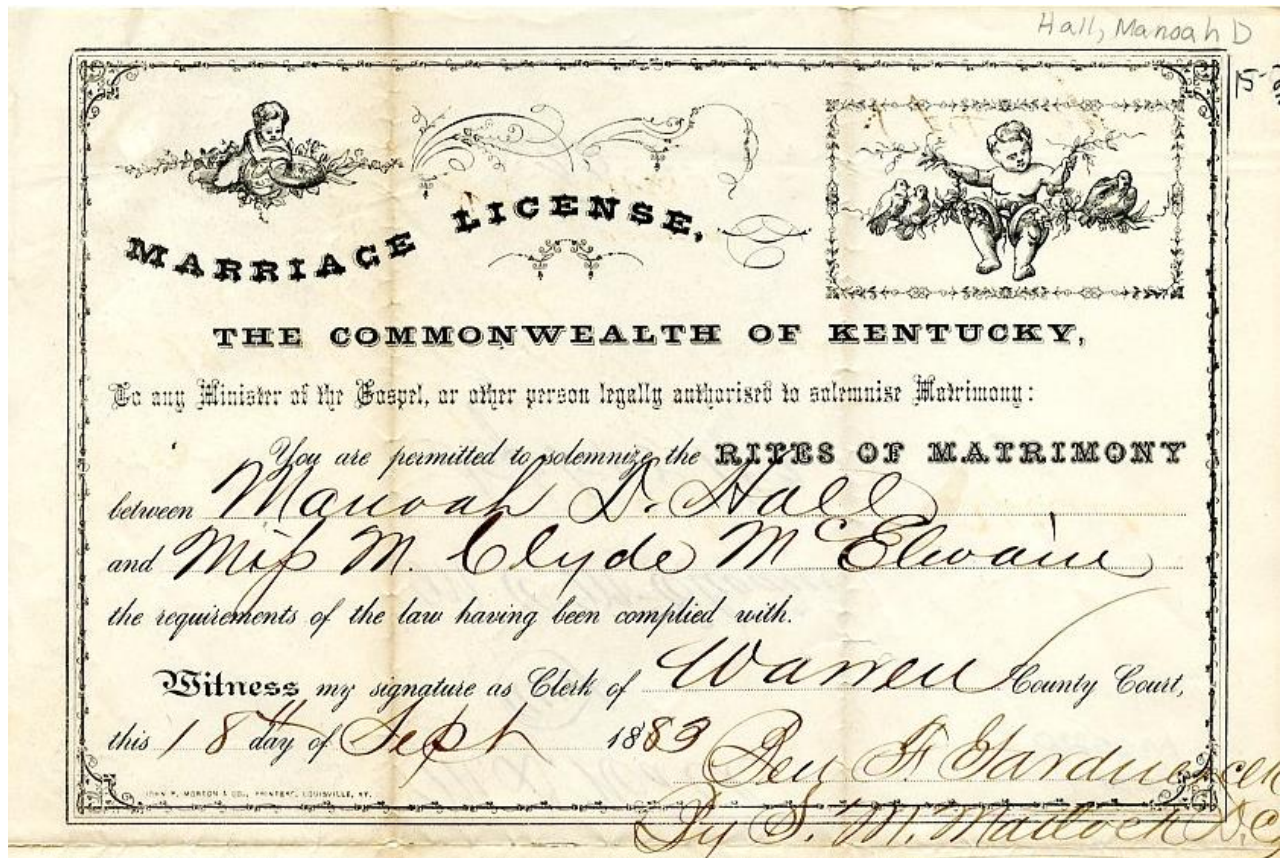 Hall, Manoah D
15-
MARRIAGE LICENSE,
THE COMMONWEALTH OF KENTUCKY,
To any Minister of the Gospel, or other person legally authorized to solemnize Matrimony:
You are permitted to solemnize the RITES OF MATRIMONY
between Manoah D. Hall
and Miss M. Clyde McElwain
the requirements of the law having been complied with.
Witness my signature as Clerk of Warren County Court,
this 18th day of Sept 1883
F. Gardner
JOHN P. MORTON & CO., PRINTERS, LOUISVILLE, KY.
By S. M. Matlock D.C.